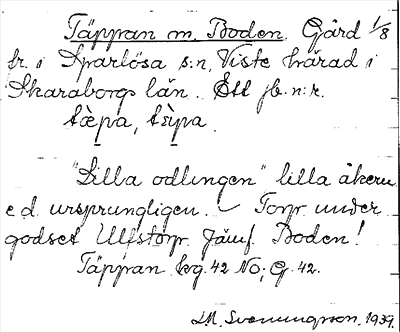 Täppan m. Boden. Gård 1/8
fr. i Sparlösa s:n, Viste härad i
Skaraborgs län. Ett jb. n:r.
tæ̀pa,
"Lilla odlingen" lilla åkern
e d. ursprungligen. Torp under
godset Ulfstorp. Jämf. Boden!
Täppan kg. 42 No; G. 42.
J.M. Svenungsson, 1939.